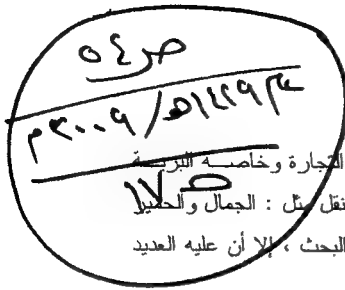 ص٥٤
١٤٢٩هـ/٢٠٠٩م
التجارة وخاصه البرية
ص١٧
نقل مثل : الجمال والحمير
البحث ، إلا أن عليه العديد